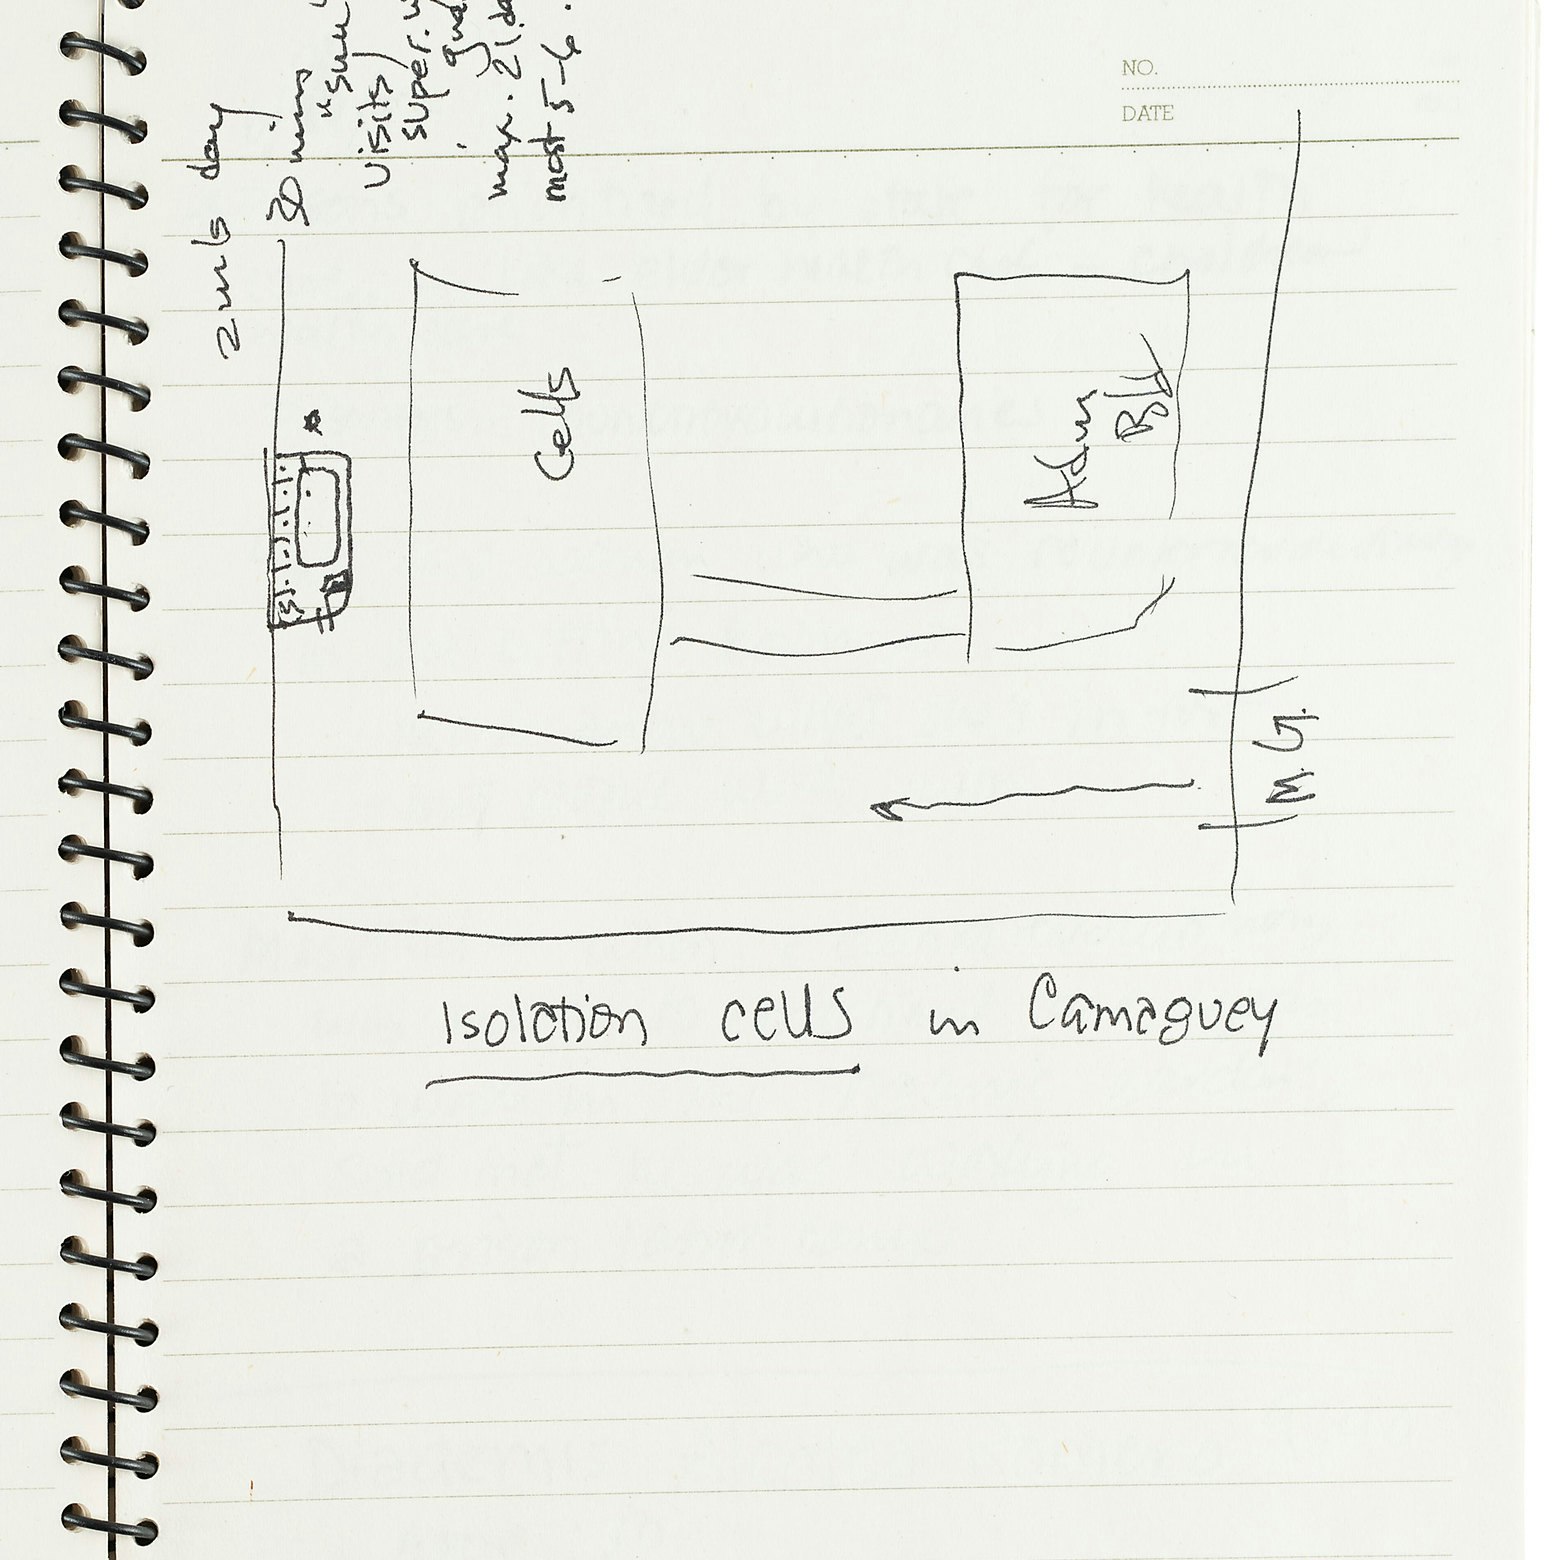 NO.
DATE
day
visits
super.
max. 21 da
most 5-6.
Cells
Adm
Bld
M.G.
Isolation cells in Camaguey